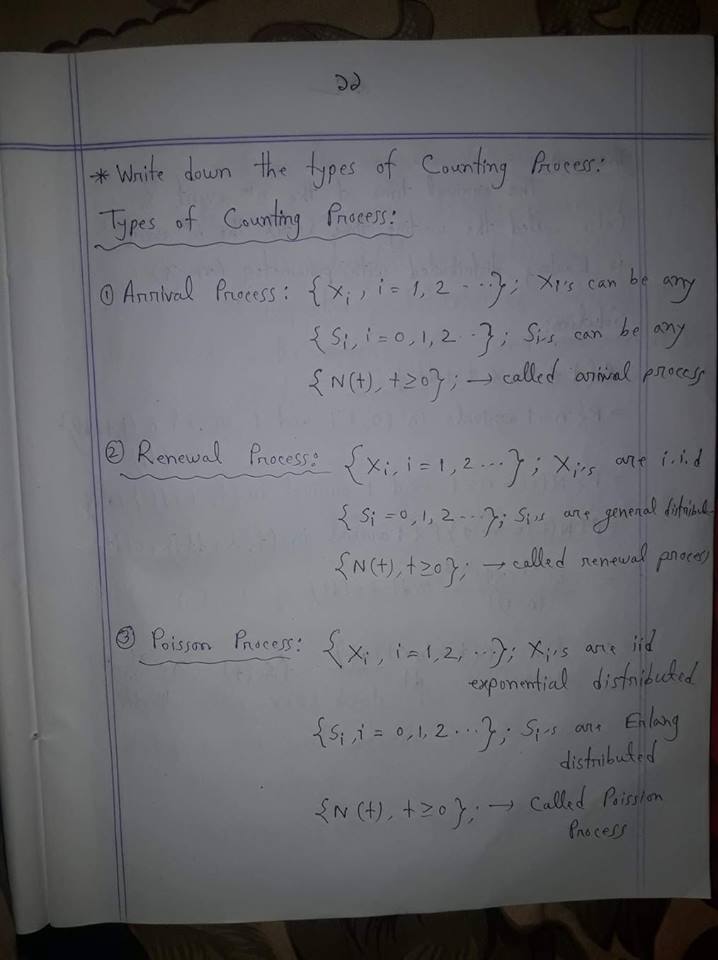 22
* Write down the types of Counting Process:
Types of Counting Process:
① Arrival Process: {Xi, i = 1, 2 ...}; Xi's can be any
{Si, i = 0, 1, 2 ..}; Si's can be any
{N(t), t ≥ 0}; → called arival process
② Renewal Process: {Xi, i = 1, 2 ...}; Xi's are i.i.d
{Si = 0, 1, 2 ...}; Si's are general distribut
{N(t), t ≥ 0}; → called renewal process
③ Poisson Process: {Xi, i = 1, 2, ...}; Xi's are iid
exponential distributed
{Si, i = 0, 1, 2 ...}; Si's are Erlang
distributed
{N(t), t ≥ 0}; → Called Poission
Process